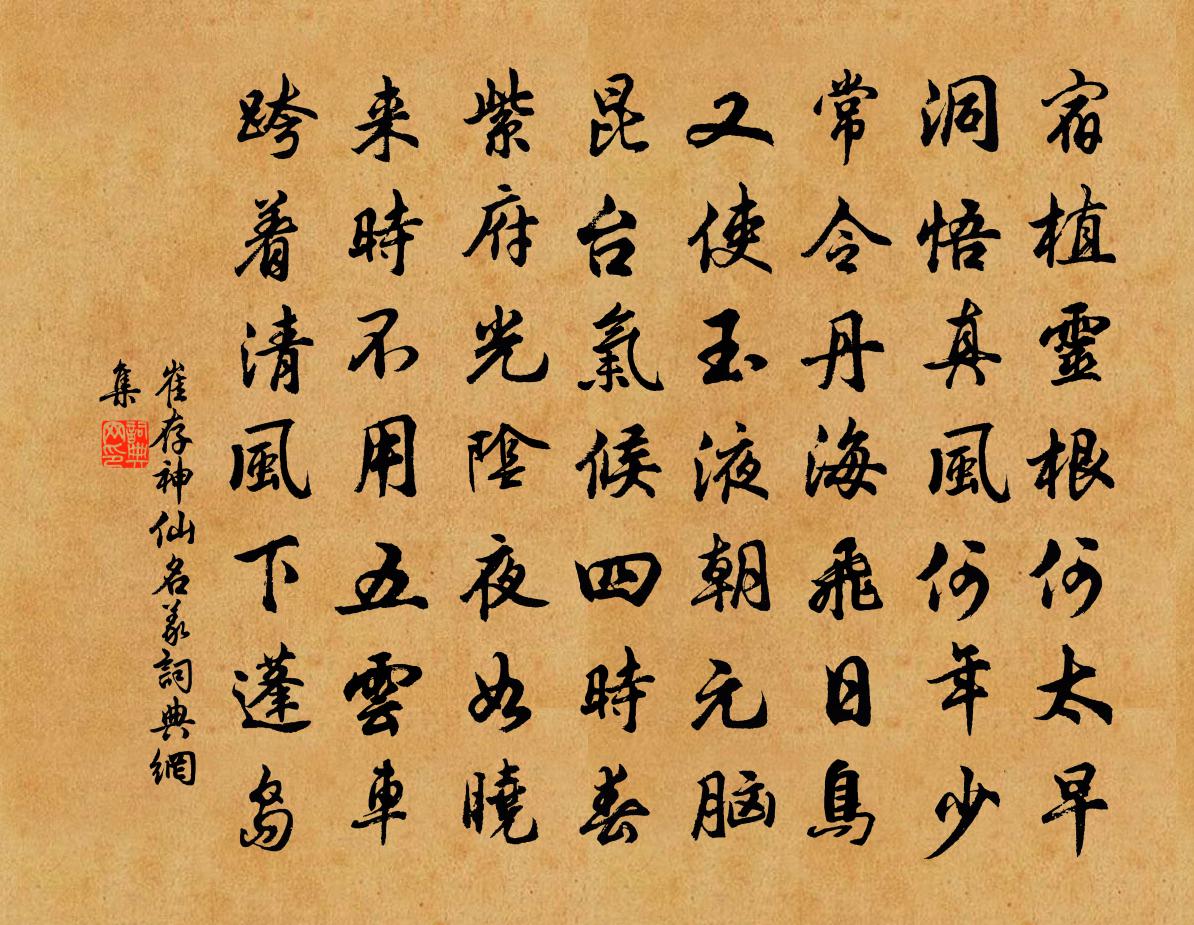 宿植靈根何太早
洞悟真風何年少
常令丹海飛日烏
又使玉液朝元脑
昆台氣候四時春
紫府光陰夜如曉
来時不用五雲車
跨着清風下蓬島
崔存神仙名義詞典網
集
詞典
网印